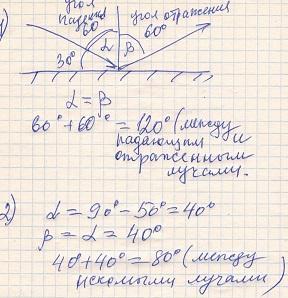 1)
угол падения
60°
угол отражения
60°
30°
α
β
α = β
60°+60° = 120° (между
падающим и
отраженным
лучами.
2) α = 90° - 50° = 40°
β = α = 40°
40°+40° = 80° (между
искомыми лучами)